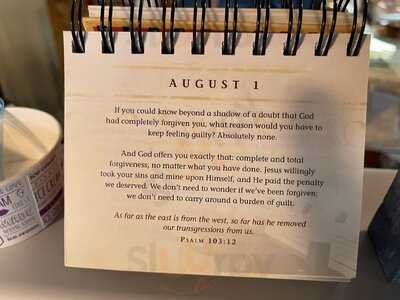 AUGUST 1
If you could know beyond a shadow of a doubt that God
had completely forgiven you, what reason would you have to
keep feeling guilty? Absolutely none.
And God offers you exactly that: complete and total
forgiveness, no matter what you have done. Jesus willingly
took your sins and mine upon Himself, and He paid the penalty
we deserved. We don't need to wonder if we've been forgiven;
we don't need to carry around a burden of guilt.
As far as the east is from the west, so far has he removed
our transgressions from us.
PSALM 103:12